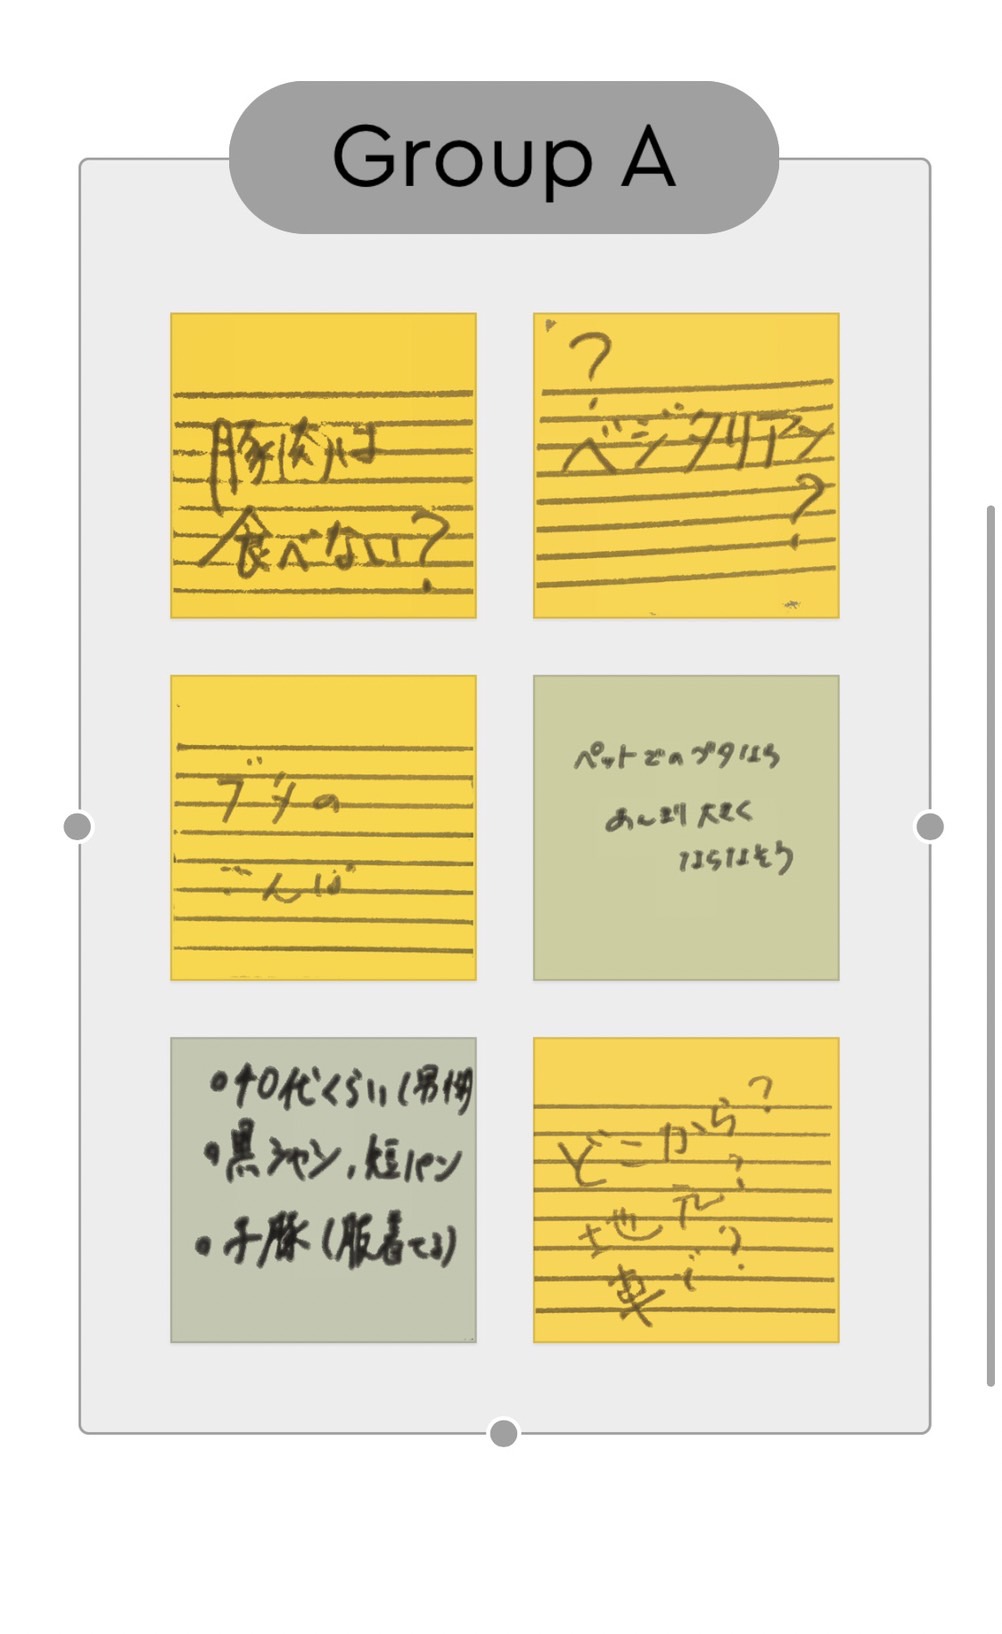 Group A
豚肉は
食べない?
?
ベジタリアン
?
ブタの
ごはん
ペットでのブタなら
あんまり大きく
ならなそう
•40代くらい(男性
•黒シャツ、短パン
•子豚(服着てる)
どこから?
地元?
車で?